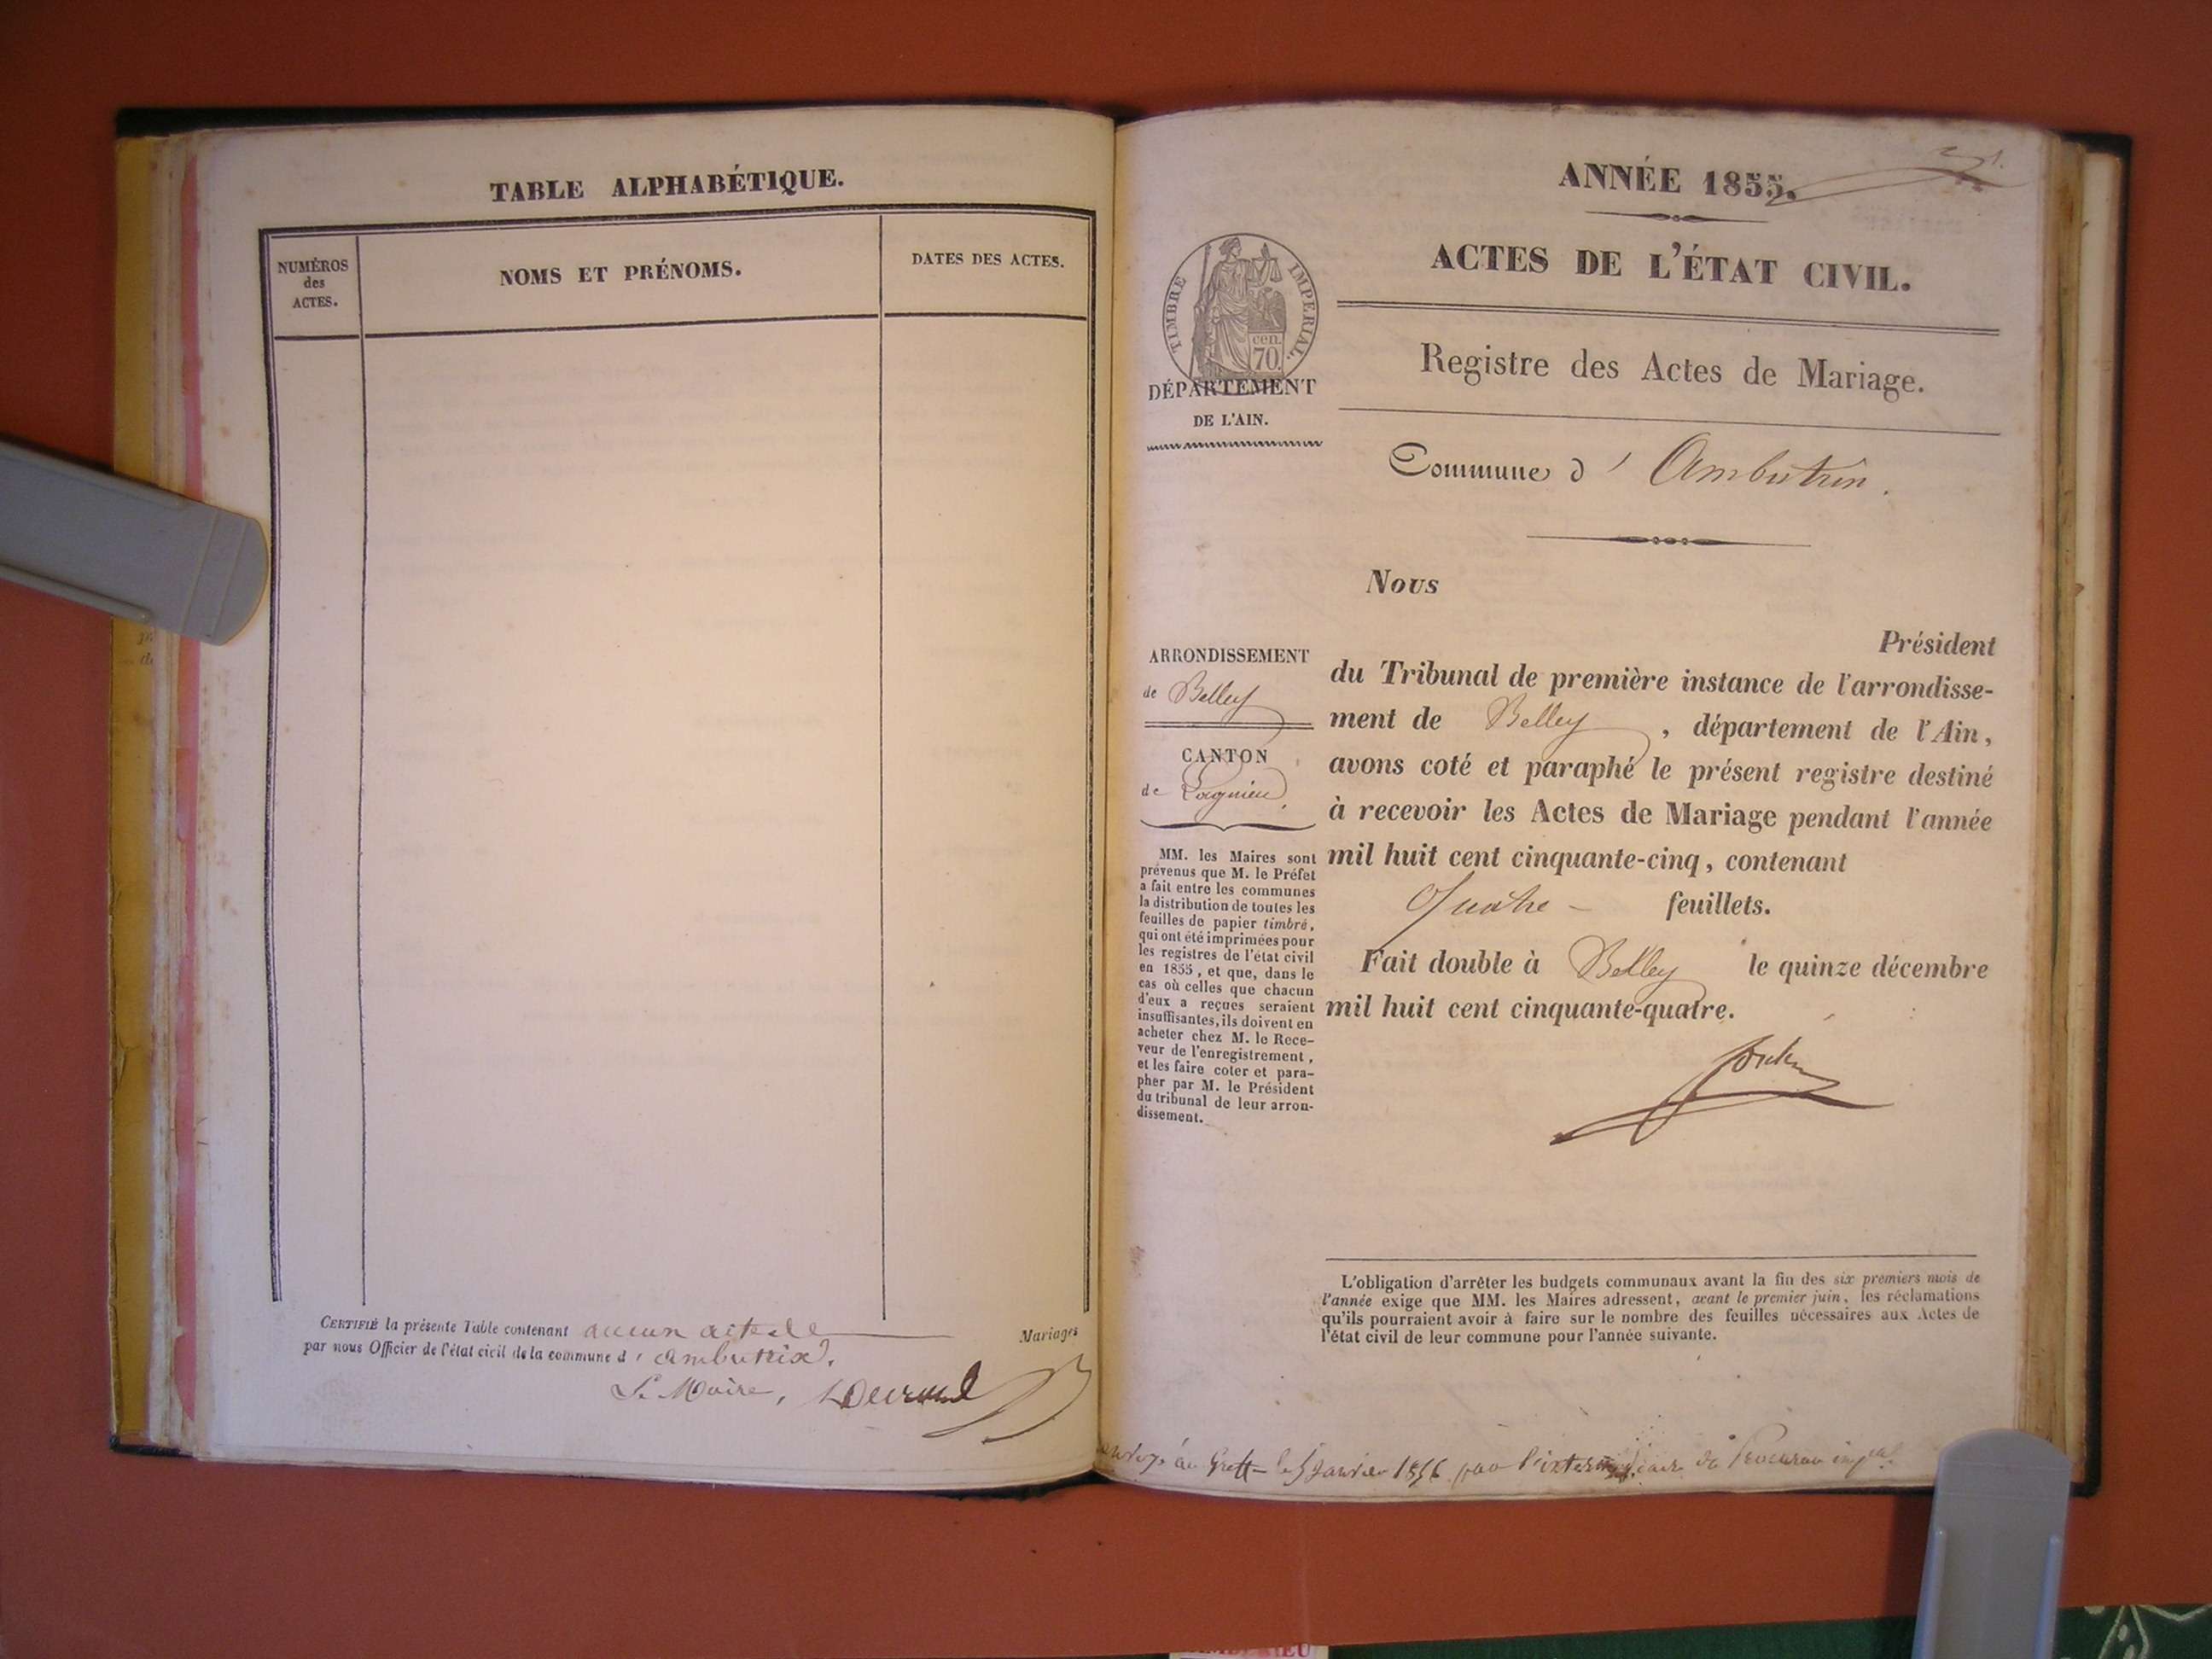 TABLE ALPHABÉTIQUE.
NUMÉROS
des
ACTES.
NOMS ET PRÉNOMS.
DATES DES ACTES.
CERTIFIÉ la présente Table contenant aucun acte de Mariages
par nous Officier de l'état civil de la commune d' ambutrix.
Le Maire,
ANNÉE 1855.
ACTES DE L'ÉTAT CIVIL.
TIMBRE IMPERIAL.
cen.
70.
DÉPARTEMENT
DE L'AIN.
Registre des Actes de Mariage.
Commune d'
Nous
Président
du Tribunal de première instance de l'arrondisse-
ment de Belley, département de l'Ain,
avons coté et paraphé le présent registre destiné
à recevoir les Actes de Mariage pendant l'année
mil huit cent cinquante-cinq, contenant
Quatre - feuillets.
Fait double à Belley le quinze décembre
mil huit cent cinquante-quatre.
ARRONDISSEMENT
de Belley
CANTON
de Lagnieu.
MM. les Maires sont
prévenus que M. le Préfet
a fait entre les communes
la distribution de toutes les
feuilles de papier timbré,
qui ont été imprimées pour
les registres de l'état civil
en 1855, et que, dans le
cas où celles que chacun
d'eux a reçues seraient
insuffisantes, ils doivent en
acheter chez M. le Rece-
veur de l'enregistrement,
et les faire coter et para-
pher par M. le Président
du tribunal de leur arron-
dissement.
L'obligation d'arrêter les budgets communaux avant la fin des six premiers mois de
l'année exige que MM. les Maires adressent, avant le premier juin, les réclamations
qu'ils pourraient avoir à faire sur le nombre des feuilles nécessaires aux Actes de
l'état civil de leur commune pour l'année suivante.
au Greffe le 5 Janvier 1856 par l'intermédiaire du Procureur impal